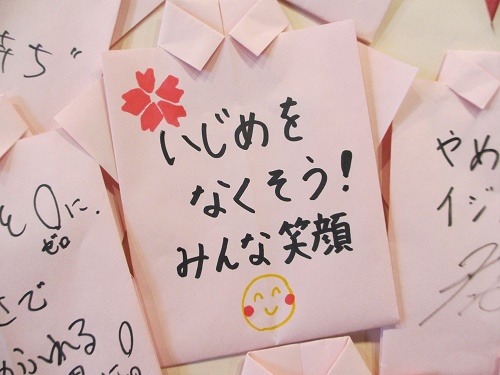 いじめを
なくそう!
みんな笑顔
持ち"
を0に.
ゼロ
さで
ふれる
やめ
イジ